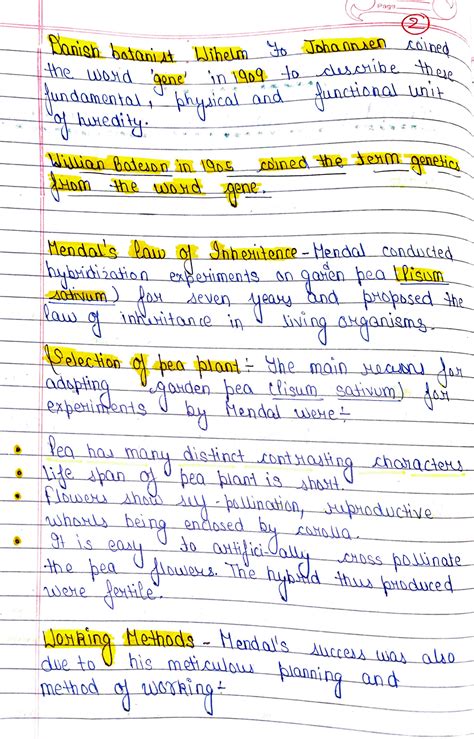 Page
2
Danish botanist Wihelm Jo Johannsen coined
the word 'gene' in 1909 to describe these
fundamental, physical and functional unit
of heredity.
William Bateson in 1905 coined the term genetics
from the word gene.
Mendal's law of Inheritence - Mendal conducted
hybridization experiments on garden pea (Pisum
sativum) for seven years and proposed the
law of inheritance in living organisms.
Selection of pea plant :- The main reasons for
adopting garden pea (Pisum sativum) for
experiments by Mendal were :-
• Pea has many distinct contrasting characters
• Life span of pea plant is short.
• Flowers show self-pollination, reproductive
whorls being enclosed by corolla.
• It is easy to artifici-ally cross pollinate
the pea flowers. The hybrid thus produced
were fertile.
Working Methods - Mendal's success was also
due to his meticulous planning and
method of working :-